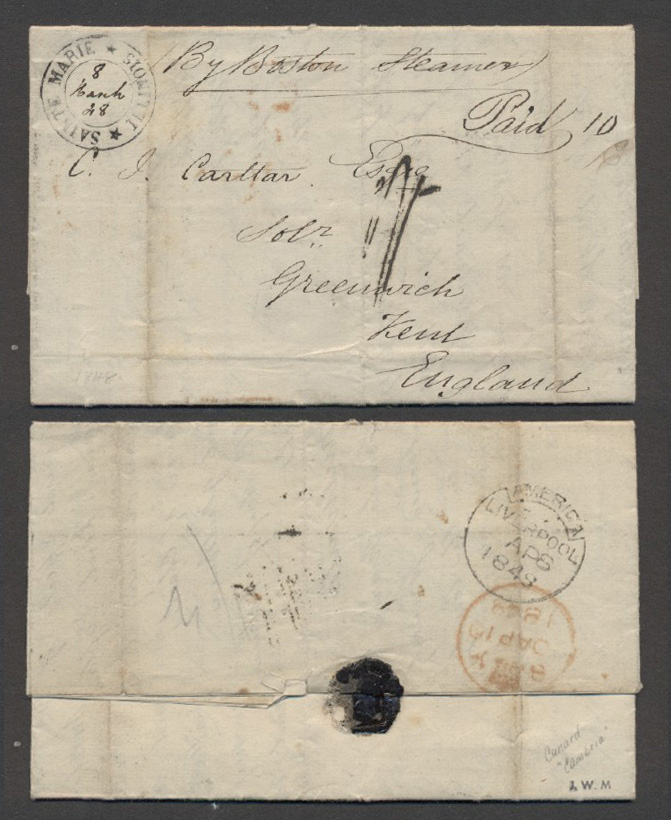 SAINTE MARIE ★ ILLINOIS ★
8
March
48
By Boston Steamer
Paid 10
C. J. Carltar Esqre
Solr
Greenwich
Kent
England
1848
AMERICA
LIVERPOOL
AP 8
1848
AP 10
1848
Cunard
"Cambria"
J.W.M